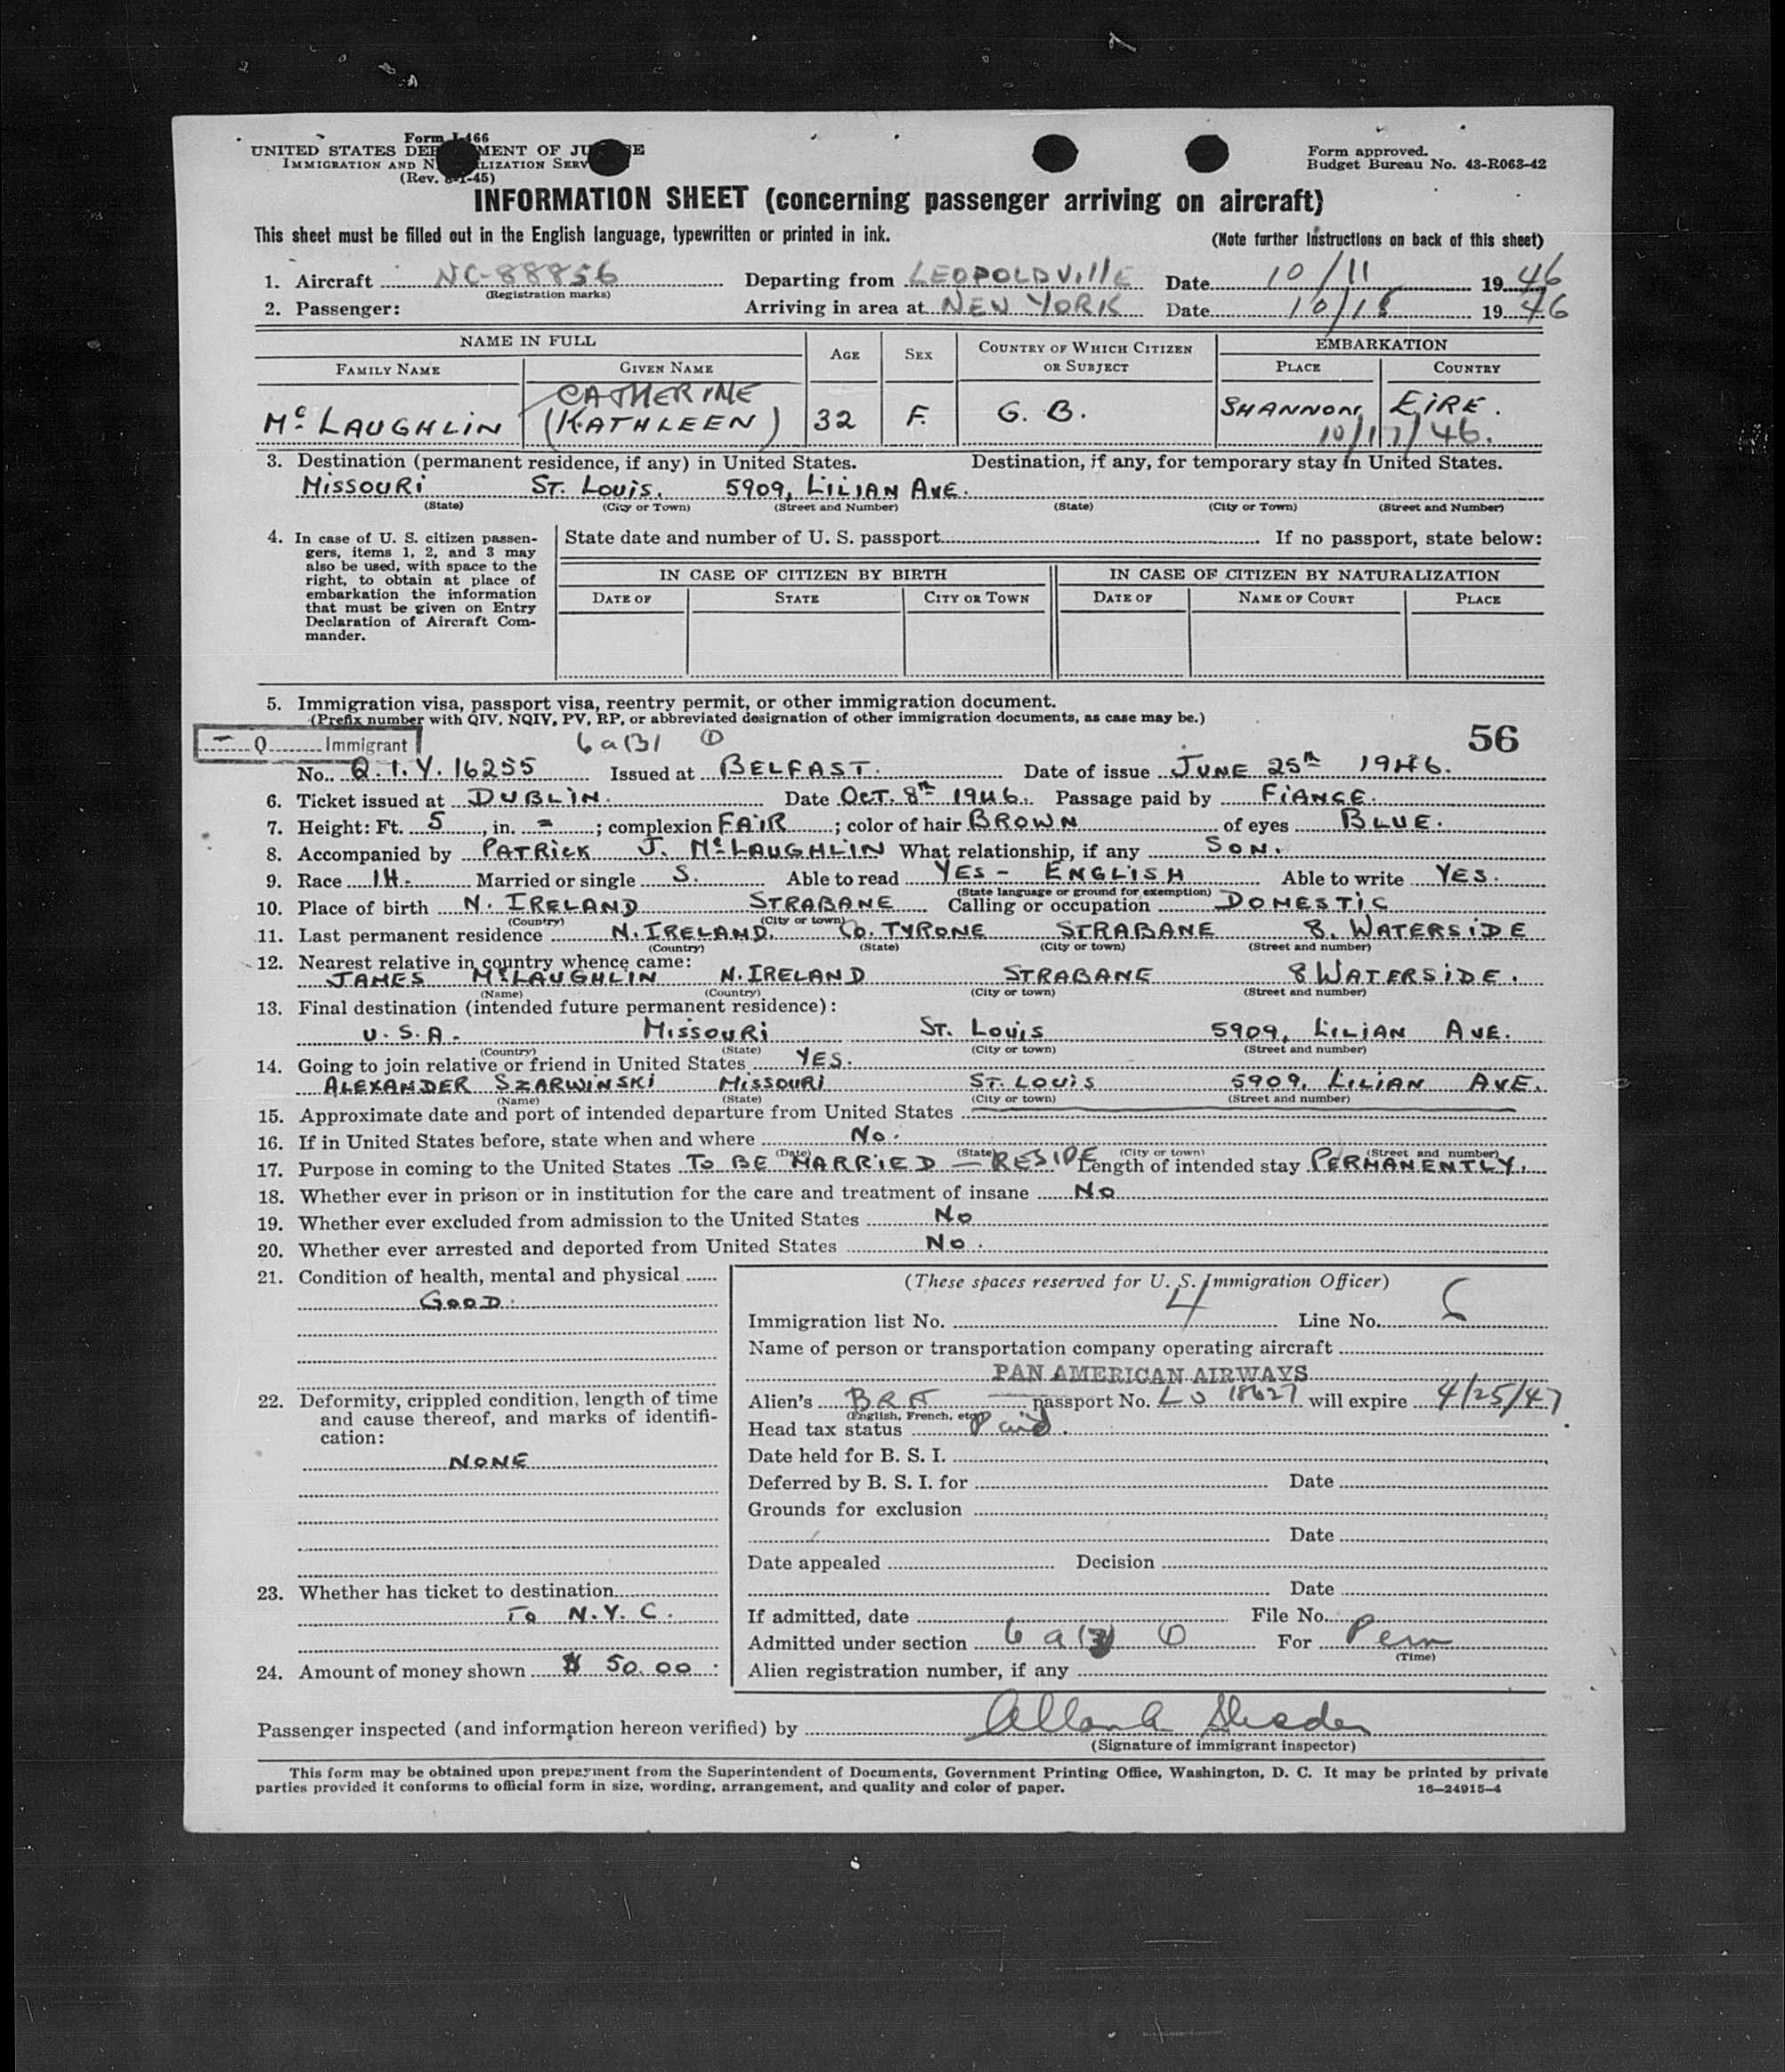 Form I-466
UNITED STATES DEPARTMENT OF JUSTICE
IMMIGRATION AND NATURALIZATION SERVICE
(Rev. 8-1-45)
Form approved.
Budget Bureau No. 43-R063-42
INFORMATION SHEET (concerning passenger arriving on aircraft)
This sheet must be filled out in the English language, typewritten or printed in ink. (Note further instructions on back of this sheet)
1. Aircraft NC-88856 Departing from LEOPOLDVILLE Date 10/11 1946
(Registration marks)
2. Passenger: Arriving in area at NEW YORK Date 10/18 1946
NAME IN FULL AGE SEX COUNTRY OF WHICH CITIZEN OR SUBJECT EMBARKATION
FAMILY NAME GIVEN NAME PLACE COUNTRY
CATHERINE
McLAUGHLIN (KATHLEEN) 32 F. G. B. SHANNON, EIRE.
10/17/46.
3. Destination (permanent residence, if any) in United States. Destination, if any, for temporary stay in United States.
MISSOURI ST. LOUIS. 5909, LILIAN AVE.
(State) (City or Town) (Street and Number) (State) (City or Town) (Street and Number)
4. In case of U. S. citizen passen-
gers, items 1, 2, and 3 may
also be used, with space to the
right, to obtain at place of
embarkation the information
that must be given on Entry
Declaration of Aircraft Com-
mander.
State date and number of U. S. passport If no passport, state below:
IN CASE OF CITIZEN BY BIRTH IN CASE OF CITIZEN BY NATURALIZATION
DATE OF STATE CITY OR TOWN DATE OF NAME OF COURT PLACE
5. Immigration visa, passport visa, reentry permit, or other immigration document.
(Prefix number with QIV, NQIV, PV, RP, or abbreviated designation of other immigration documents, as case may be.)
Q Immigrant 6a(3) ① 56
No. Q.I.V. 16255 Issued at BELFAST. Date of issue JUNE 25th 1946.
6. Ticket issued at DUBLIN. Date OCT. 8th 1946. Passage paid by FIANCE.
7. Height: Ft. 5, in. - ; complexion FAIR ; color of hair BROWN of eyes BLUE.
8. Accompanied by PATRICK J. McLAUGHLIN What relationship, if any SON.
9. Race IH. Married or single S. Able to read YES - ENGLISH Able to write YES.
(State language or ground for exemption)
10. Place of birth N. IRELAND STRABANE Calling or occupation DOMESTIC
(Country) (City or town)
11. Last permanent residence N. IRELAND. CO. TYRONE STRABANE 8. WATERSIDE
(Country) (State) (City or town) (Street and number)
12. Nearest relative in country whence came:
JAMES McLAUGHLIN N. IRELAND STRABANE 8 WATERSIDE.
(Name) (Country) (City or town) (Street and number)
13. Final destination (intended future permanent residence):
U.S.A. MISSOURI ST. LOUIS 5909, LILIAN AVE.
(Country) (State) (City or town) (Street and number)
14. Going to join relative or friend in United States YES.
ALEXANDER SZARWINSKI MISSOURI ST. LOUIS 5909, LILIAN AVE.
(Name) (State) (City or town) (Street and number)
15. Approximate date and port of intended departure from United States
16. If in United States before, state when and where No.
(Date) (State) (City or town) (Street and number)
17. Purpose in coming to the United States TO BE MARRIED — RESIDE Length of intended stay PERMANENTLY.
18. Whether ever in prison or in institution for the care and treatment of insane No
19. Whether ever excluded from admission to the United States No
20. Whether ever arrested and deported from United States No.
21. Condition of health, mental and physical
GOOD.
22. Deformity, crippled condition, length of time
and cause thereof, and marks of identifi-
cation:
NONE
23. Whether has ticket to destination
To N.Y.C.
24. Amount of money shown $ 50.00
(These spaces reserved for U. S. Immigration Officer)
Immigration list No. 4 Line No.
Name of person or transportation company operating aircraft
PAN AMERICAN AIRWAYS
Alien's passport No. LO 18627 will expire 4/25/47
(English, French, etc.)
Head tax status Paid.
Date held for B. S. I.
Deferred by B. S. I. for Date
Grounds for exclusion
Date
Date appealed Decision
Date
If admitted, date File No.
Admitted under section 6a(3) ① For Perm
(Time)
Alien registration number, if any
Passenger inspected (and information hereon verified) by
(Signature of immigrant inspector)
This form may be obtained upon prepayment from the Superintendent of Documents, Government Printing Office, Washington, D. C. It may be printed by private
parties provided it conforms to official form in size, wording, arrangement, and quality and color of paper. 16—24915-4